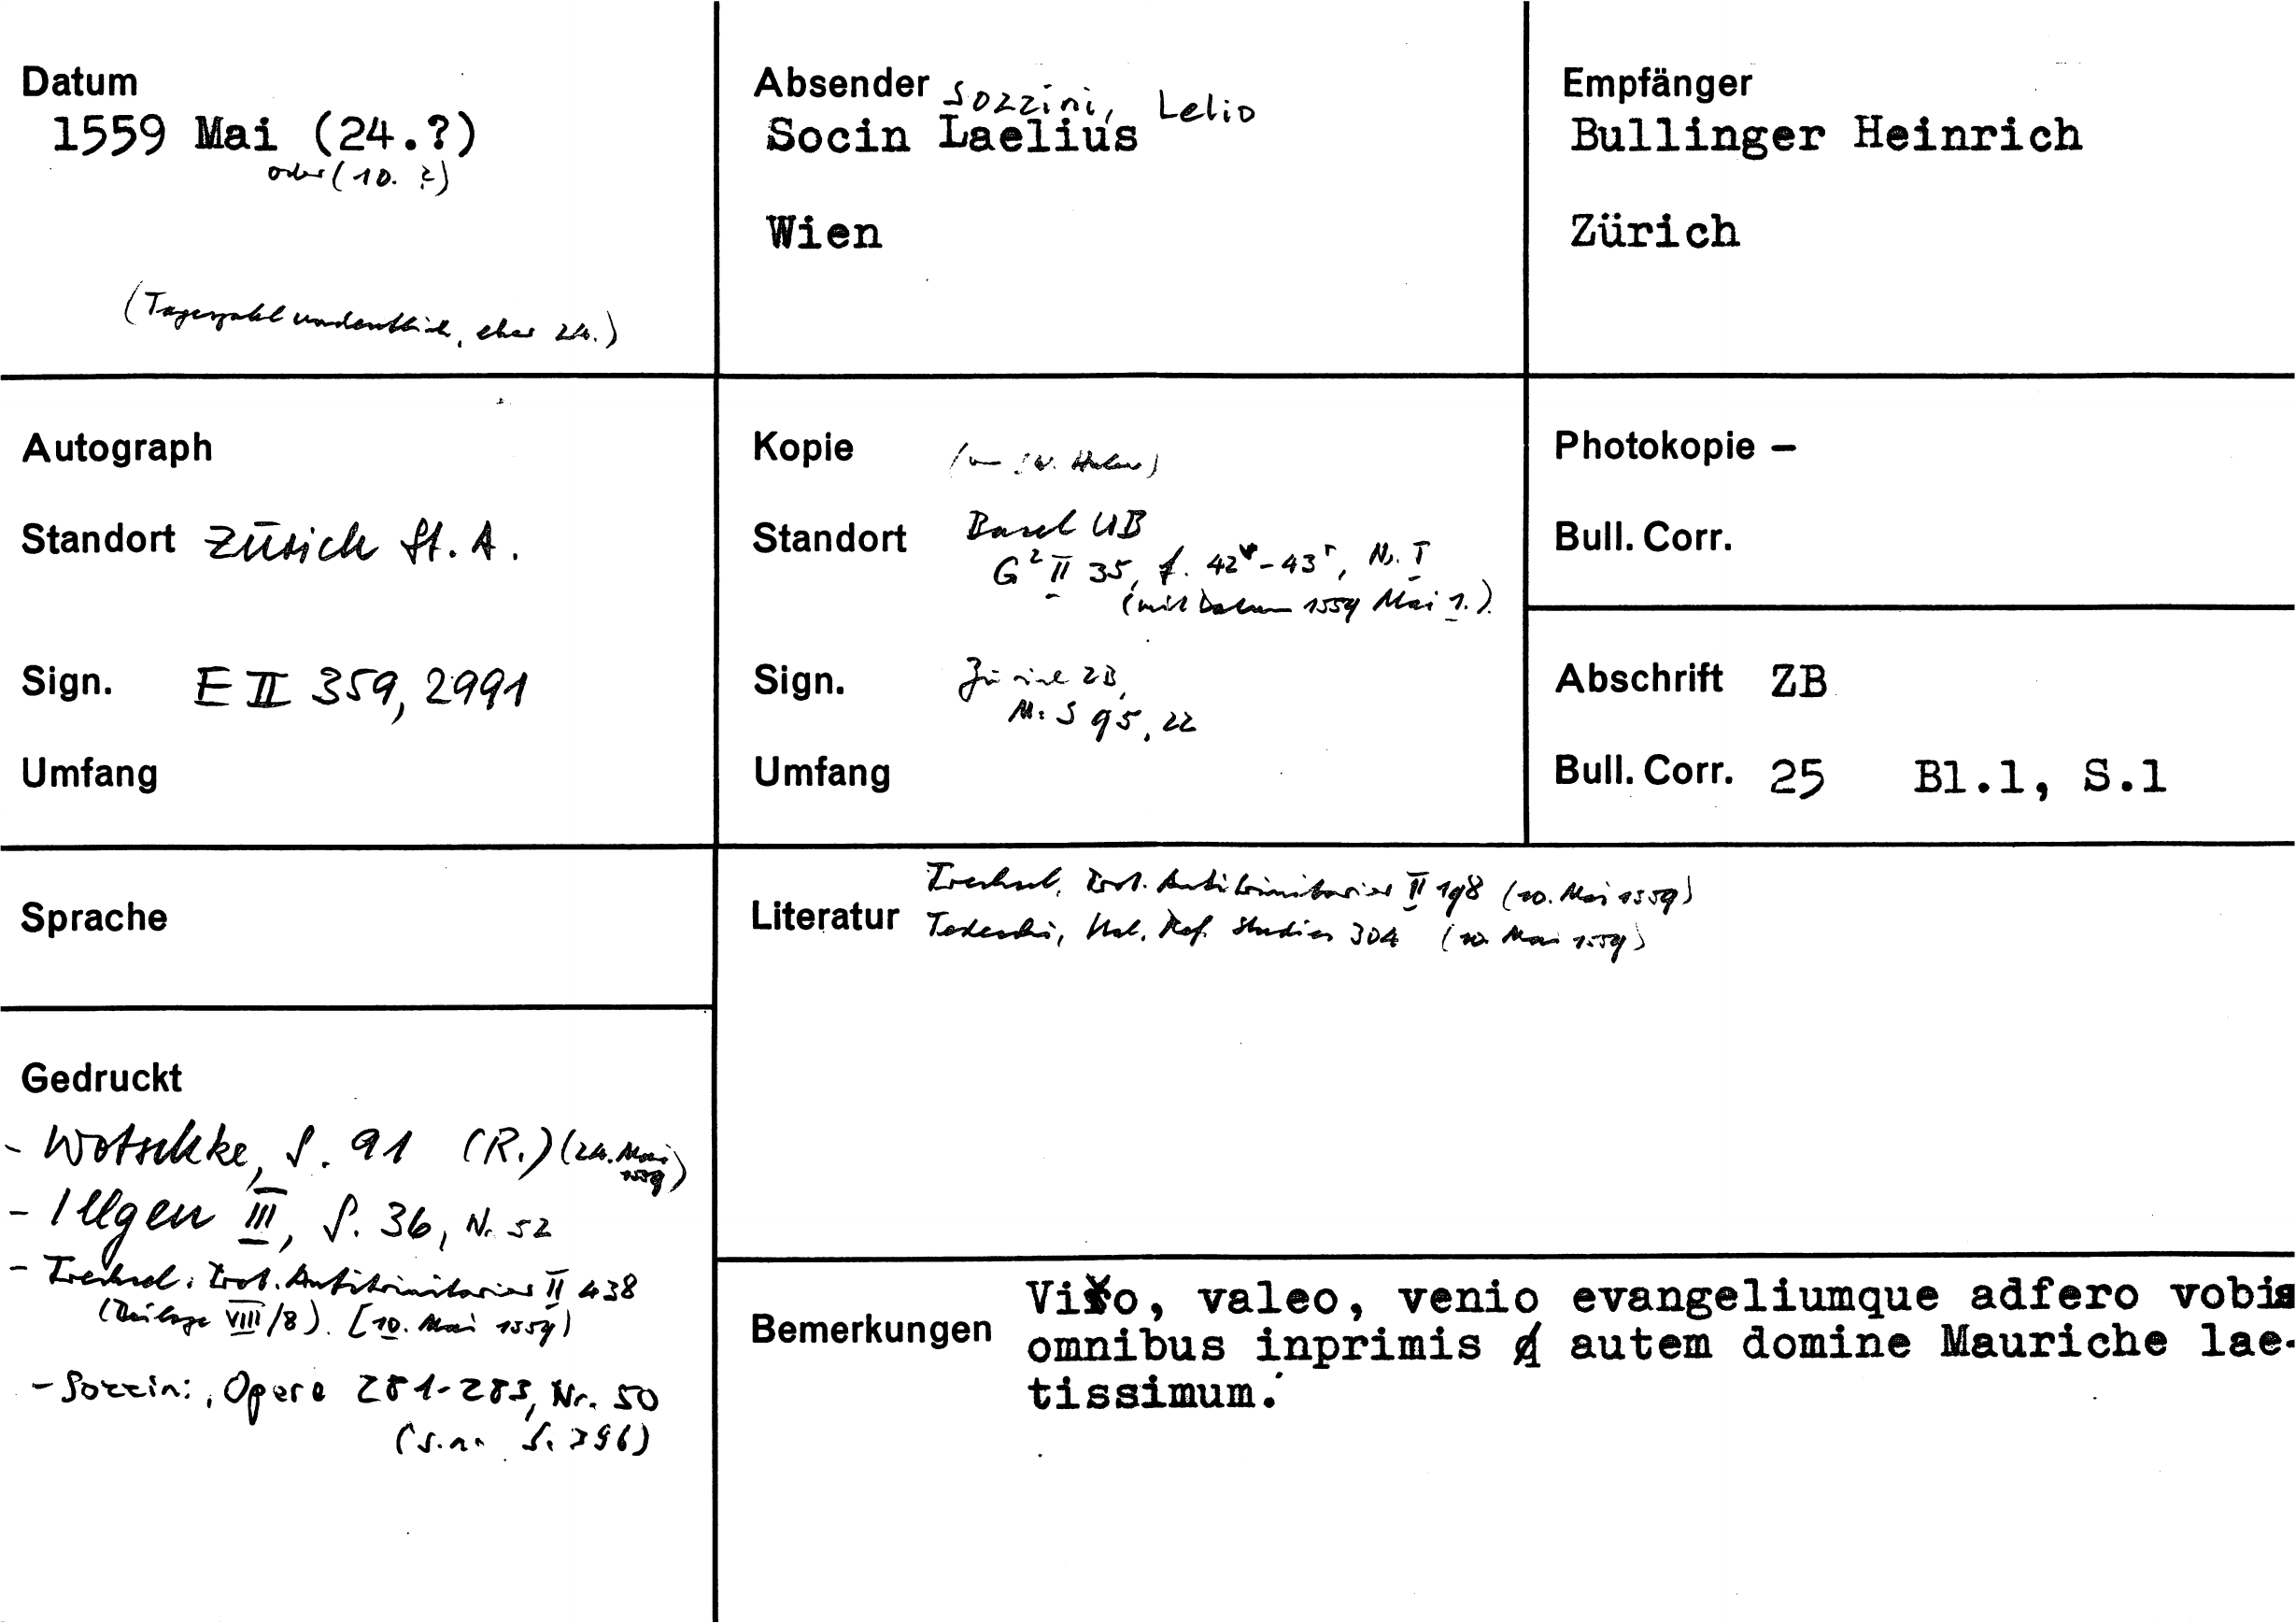 Datum
1559 Mai (24.?)
oder (10. ?)
(Tageszahl undeutlich, eher 24.)
Absender Sozzini, Lelio
Socin Laelius
Wien
Empfänger
Bullinger Heinrich
Zürich
Autograph
Standort Zürich St. A.
Sign. E II 359, 2991
Umfang
Kopie
Standort Basel UB
G² II 35, f. 42v-43r, Nr. I
(mit Datum 1559 Mai 1.)
Sign. Zürich ZB,
Ms S 95, 22
Umfang
Photokopie –
Bull. Corr.
Abschrift ZB
Bull. Corr. 25 Bl.1, S.1
Sprache
Literatur Trechsel, Prot. Antitrinitarier II 198 (10. Mai 1559)
Tedeschi, Ital. Ref. Studies 304 (10. Mai 1559)
Gedruckt
- Wotschke, S. 91 (R.) (24. Mai 1559)
- Illgen III, S. 36, Nr. 52
- Trechsel: Prot. Antitrinitarier II 438
(Beilage VIII/8). [10. Mai 1559)
- Sozzini, Opere 281-283, Nr. 50
(s.a. S. 396)
Bemerkungen Vivo, valeo, venio evangeliumque adfero vobis
omnibus inprimis autem domine Mauriche lae-
tissimum.